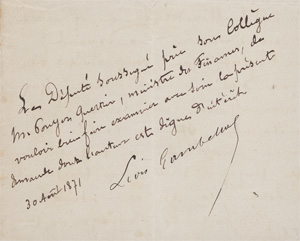 Le Député soussigné prie son Collègue
M. Pouyer Quertier, ministre des Finances, de
vouloir bien faire examiner avec soin la présente
demande dont l'auteur est digne d'intérêt
30 Août 1871
Léon Gambetta